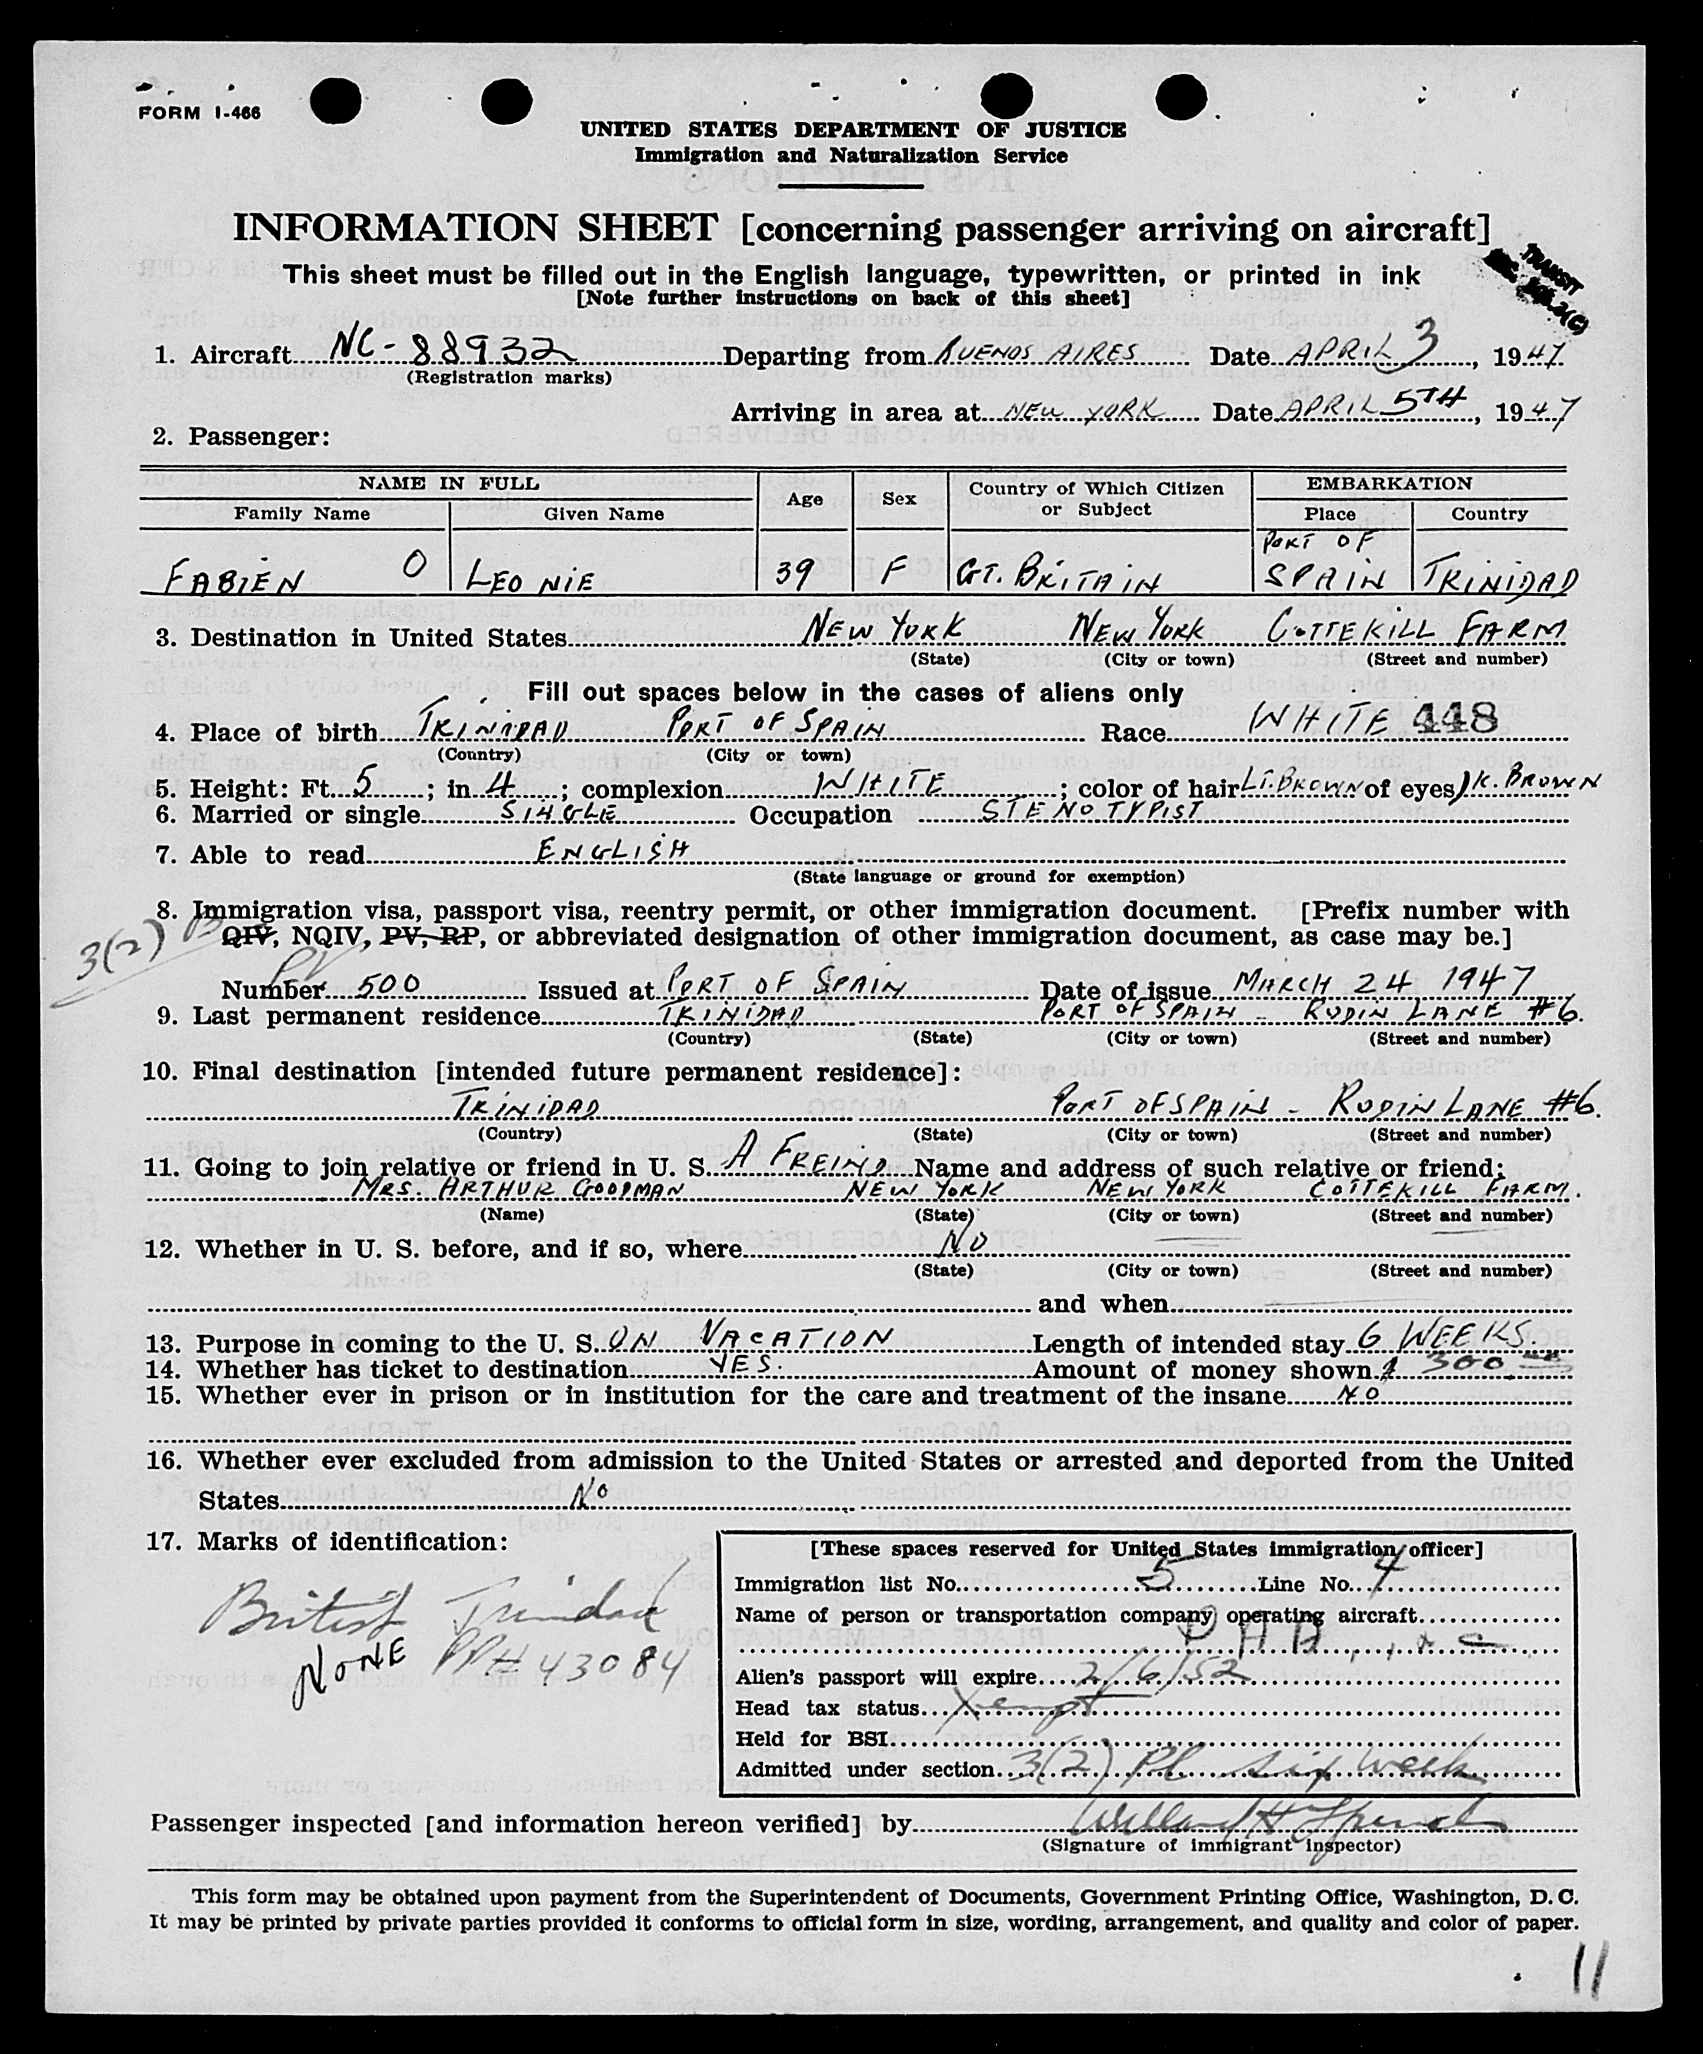 FORM I-466
UNITED STATES DEPARTMENT OF JUSTICE
Immigration and Naturalization Service
INFORMATION SHEET [concerning passenger arriving on aircraft]
This sheet must be filled out in the English language, typewritten, or printed in ink
[Note further instructions on back of this sheet]
TRANSIT
1. Aircraft NC-88932 Departing from BUENOS AIRES Date APRIL 3, 1947
(Registration marks)
Arriving in area at NEW YORK Date APRIL 5TH, 1947
2. Passenger:
NAME IN FULL Age Sex Country of Which Citizen or Subject EMBARKATION
Family Name Given Name Place Country
FABIEN O LEONIE 39 F GT. BRITAIN PORT OF SPAIN TRINIDAD
3. Destination in United States NEW YORK NEW YORK COTTEKILL FARM
(State) (City or town) (Street and number)
Fill out spaces below in the cases of aliens only
4. Place of birth TRINIDAD PORT OF SPAIN Race WHITE 448
(Country) (City or town)
5. Height: Ft. 5; in. 4; complexion WHITE; color of hair LT. BROWN of eyes DK. BROWN
6. Married or single SINGLE Occupation STENOTYPIST
7. Able to read ENGLISH
(State language or ground for exemption)
8. Immigration visa, passport visa, reentry permit, or other immigration document. [Prefix number with
3(2) QIV, NQIV, PV, RP, or abbreviated designation of other immigration document, as case may be.]
PV
Number 500 Issued at PORT OF SPAIN Date of issue MARCH 24 1947
9. Last permanent residence TRINIDAD PORT OF SPAIN - RUDIN LANE #6.
(Country) (State) (City or town) (Street and number)
10. Final destination [intended future permanent residence]:
TRINIDAD PORT OF SPAIN - RUDIN LANE #6.
(Country) (State) (City or town) (Street and number)
11. Going to join relative or friend in U. S. A FREIND Name and address of such relative or friend:
MRS. ARTHUR GOODMAN NEW YORK NEW YORK COTTEKILL FARM.
(Name) (State) (City or town) (Street and number)
12. Whether in U. S. before, and if so, where NO
(State) (City or town) (Street and number)
and when
13. Purpose in coming to the U. S. ON VACATION Length of intended stay 6 WEEKS.
14. Whether has ticket to destination YES. Amount of money shown $ 300
15. Whether ever in prison or in institution for the care and treatment of the insane NO
16. Whether ever excluded from admission to the United States or arrested and deported from the United
States NO
17. Marks of identification:
British Trinidad
NONE PP# 43084
[These spaces reserved for United States immigration officer]
Immigration list No. 5 Line No. 4
Name of person or transportation company operating aircraft
P A A
Alien's passport will expire 2/6/52
Head tax status Xempt
Held for BSI
Admitted under section 3(2) PL six week
Passenger inspected [and information hereon verified] by
(Signature of immigrant inspector)
This form may be obtained upon payment from the Superintendent of Documents, Government Printing Office, Washington, D. C.
It may be printed by private parties provided it conforms to official form in size, wording, arrangement, and quality and color of paper.
11